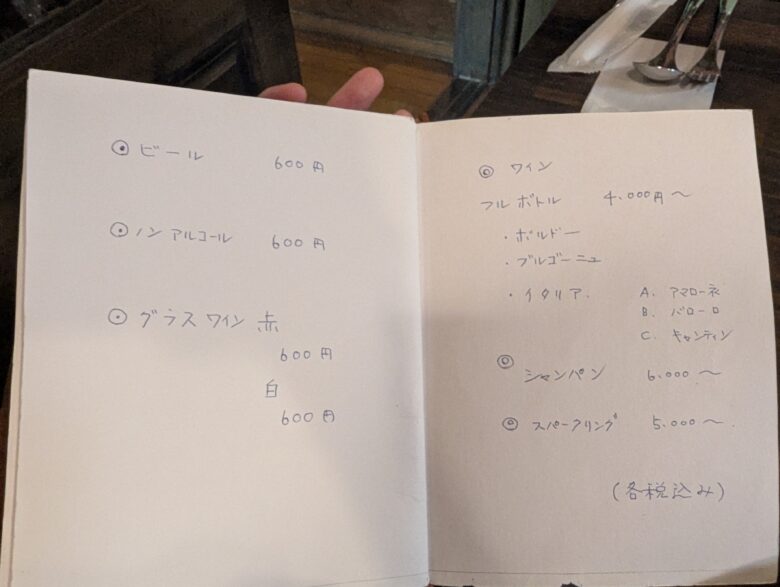 ◉ ビール 600円
◉ ノンアルコール 600円
◉ グラスワイン 赤
600円
白
600円
◎ ワイン
フルボトル 4.000円〜
・ボルドー
・ブルゴーニュ
・イタリア. A. アマローネ
B. バローロ
C. キャンティン
◎ シャンパン 6.000〜
◎ スパークリング 5.000〜.
(各税込み)